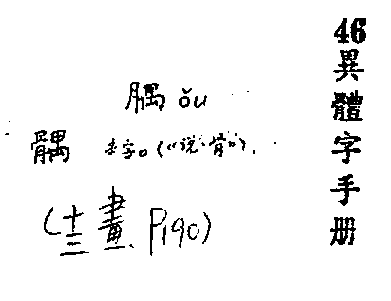 46
異體字手册
腢 ǒu
髃 本字。(《说·骨》).
(十三畫、P190)